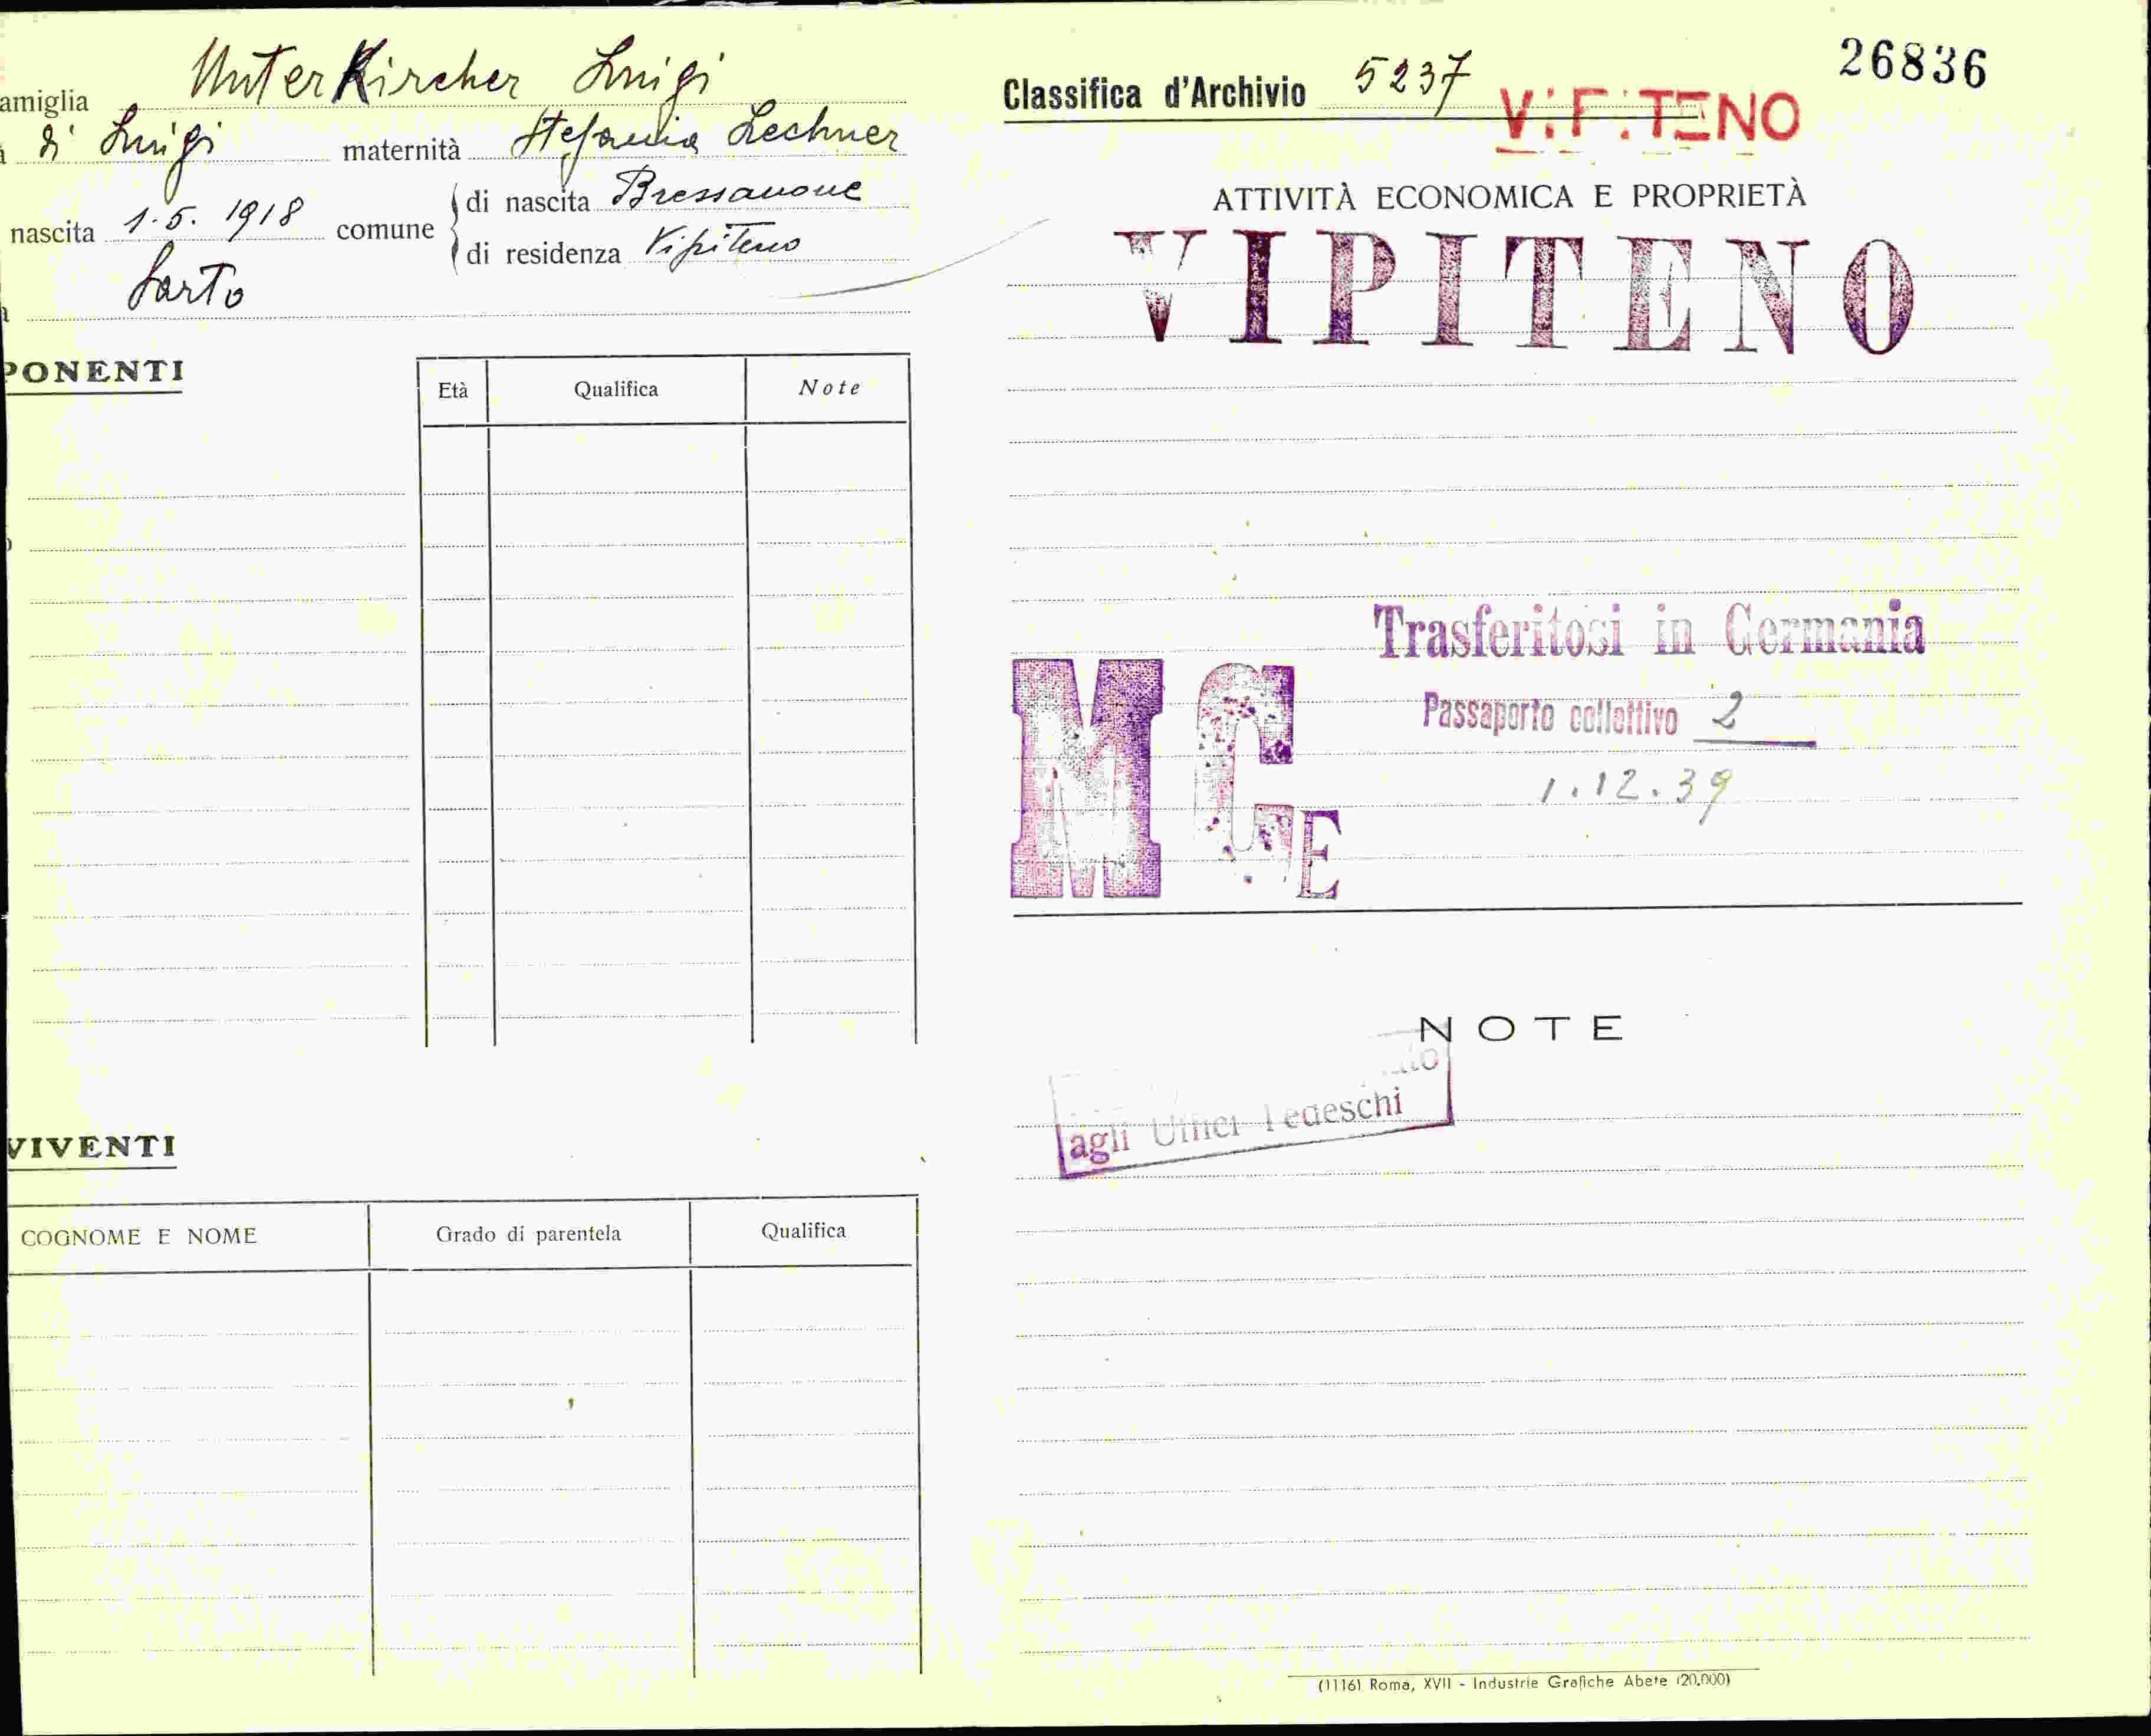 amiglia UnterKircher Luigi
di Luigi maternità Stefania Lechner
nascita 1.5.1918 comune di nascita Bressanone
di residenza Vipiteno
Sarto
PONENTI
Età Qualifica Note
VIVENTI
COGNOME E NOME Grado di parentela Qualifica
Classifica d'Archivio 5237 26836
VIPITENO
ATTIVITÀ ECONOMICA E PROPRIETÀ
VIPITENO
Trasferitosi in Germania
Passaporto collettivo 2
1.12.39
MCE
NOTE
agli Uffici Tedeschi
(11161 Roma, XVII - Industrie Grafiche Abete (20.000)